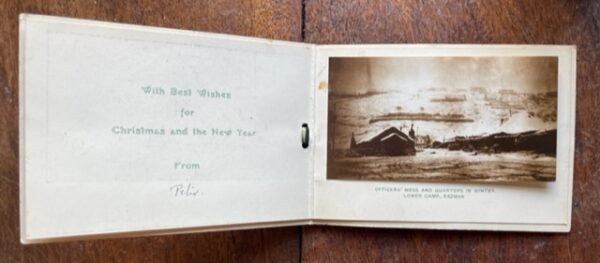 With Best Wishes
for
Christmas and the New Year
From
Felix.
OFFICERS' MESS AND QUARTERS IN WINTER.
LOWER CAMP, KAZVIN.